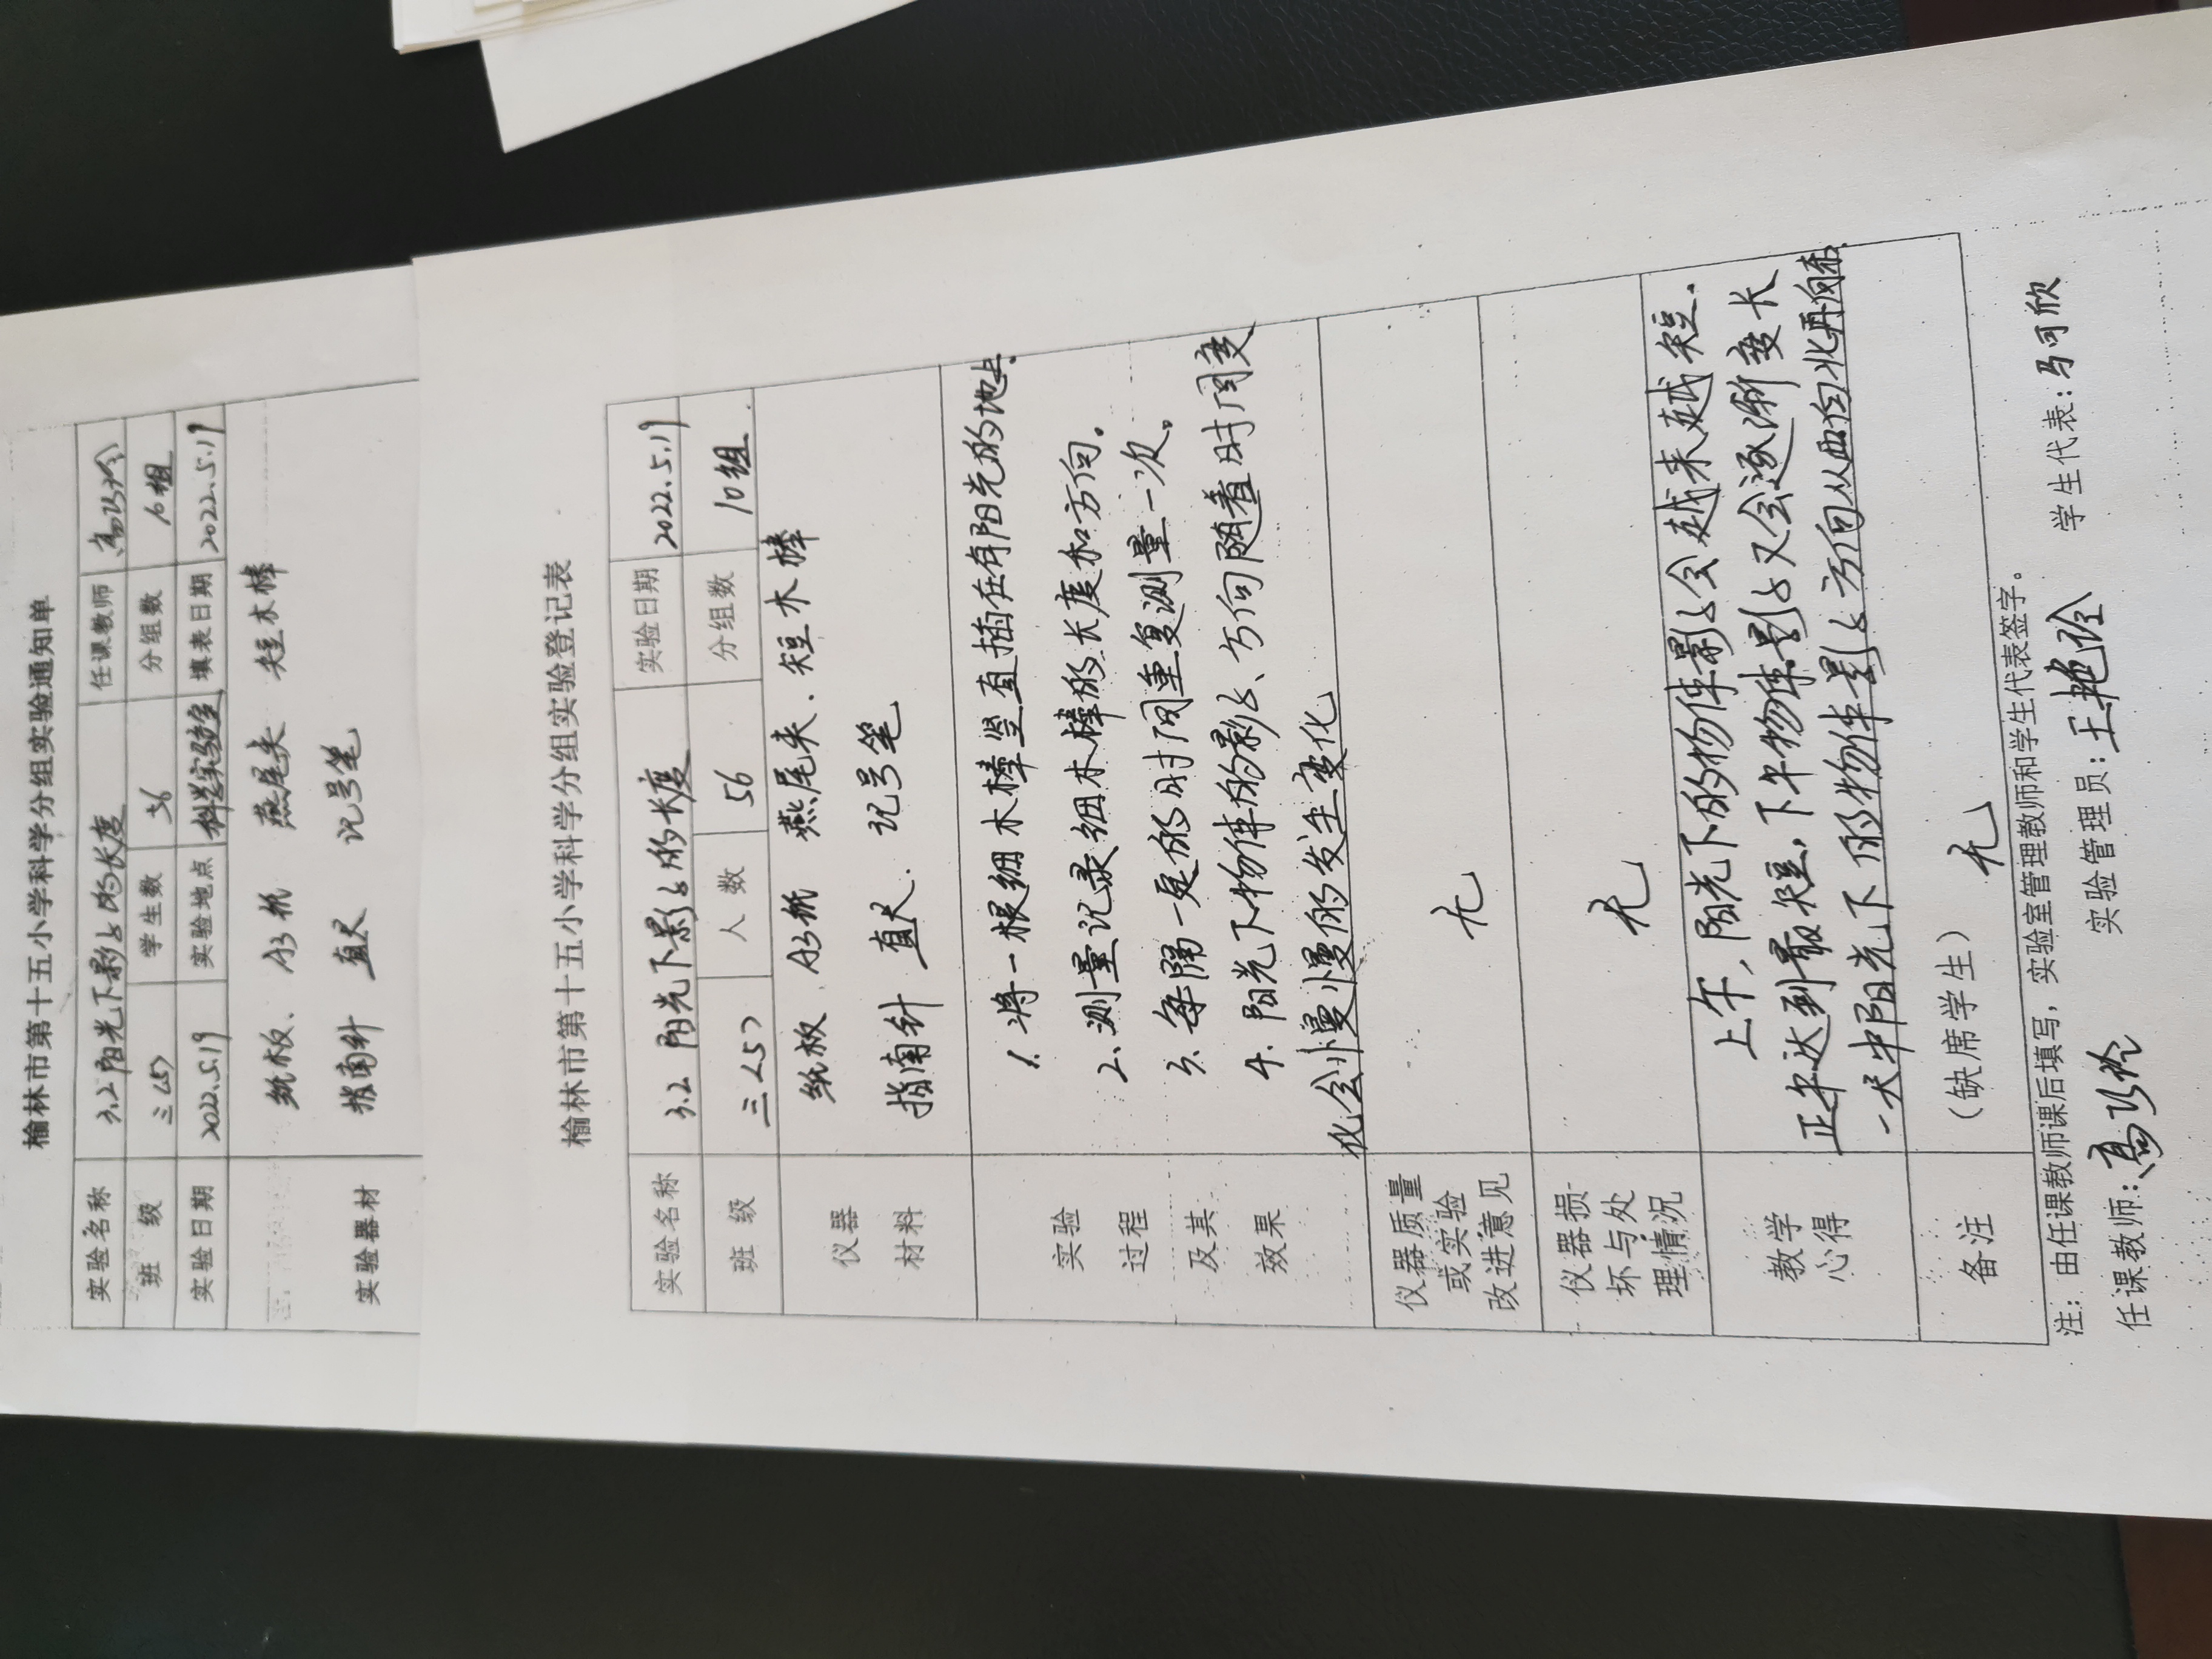 榆林市第十五小学科学分组实验通知单
实验名称 3.2阳光下影子的长度 任课教师
班 级 三<5> 学生数 56 分组数 10组
实验日期 2022.5.19 实验地点 科学实验室 填表日期 2022.5.19
实验器材
纸板、A3纸 燕尾夹 短木棒
指南针 直尺 记号笔
榆林市第十五小学科学分组实验登记表
实验名称 3.2 阳光下影子的长度 实验日期 2022.5.19
班 级 三<5> 人 数 56 分组数 10组
仪器
材料
纸板、A3纸 燕尾夹、短木棒
指南针 直尺、记号笔
实验
过程
及其
效果
1.将一根细木棒竖直插在有阳光的地上.
2.测量记录细木棒的长度和方向。
3.每隔一定的时间重复测量一次。
4.阳光下物体的影子、方向随着时间变
化会慢慢的发生变化
仪器质量
或实验
改进意见
无
仪器损
坏与处
理情况
无
教学
心得
上午,阳光下的物体影子会越来越短.
正午达到最短,下午物体影子又会逐渐变长
一天中阳光下的物体影子方向从西向北再向东.
备注
(缺席学生) 无
注：由任课教师课后填写，实验室管理教师和学生代表签字。
任课教师: 实验管理员:王艳玲 学生代表:马可欣